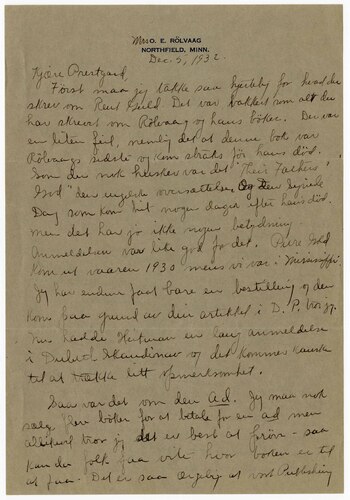 Mrs O. E. RÖLVAAG
NORTHFIELD, MINN.
Dec. 5, 1932.
Kjære Prestgard,
Först maa jeg takke saa hjertelig for hvad du
skrev om Rent Guld. Det var vakkert som alt du
har skrevet om Rölvaag og hans böker. Der var
en liten feil, nemlig det at denne bok var
Rölvaags sidste og kom straks för hans död.
Som du nok husker var det "Their Fathers'
God" den engelske oversættelse
Dag som kom hit nogen dager efter hans död.
men det har jo ikke nogen betydning
Anmeldelsen var like god for det. Pure Gold
kom ut vaaren 1930 mens vi var i Mississippi.
Jeg har endnu faat bare en bestilling og den
kom paa grund av din artikkel i D. P.
Nu hadde Heitman en lang anmeldelse
i Duluth Skandinav og det kommer kanske
til at vække litt opmerksomhet.
Saa var det om den ad. Jeg maa nok
selge flere böker for at betale for en ad men
allikevel tror jeg det er best at pröve - saa
kan da folk faa vite hvor boken er til
at faa. Det er saa ergelig at vort Publishing